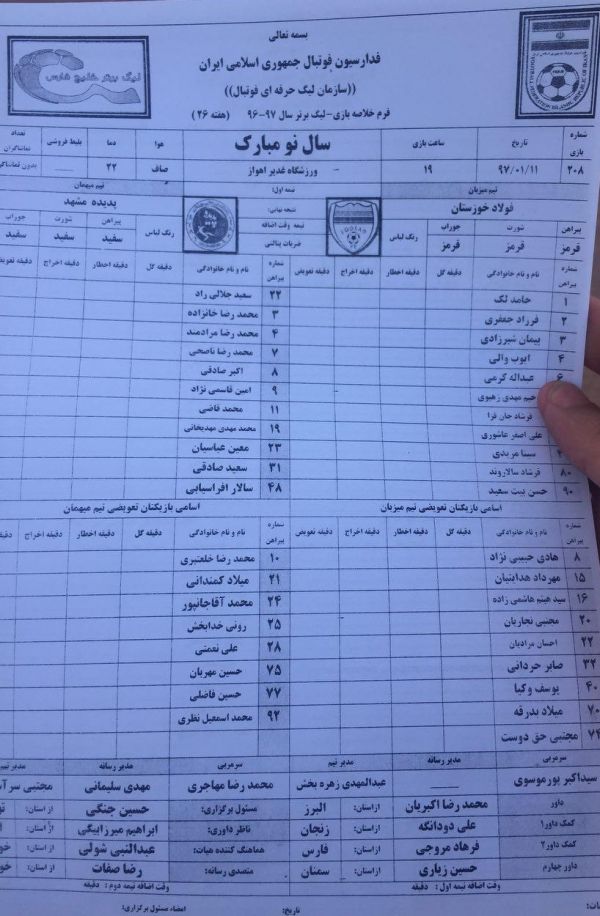 بسمه تعالی
فدارسیون فوتبال جمهوری اسلامی ایران
((سازمان لیگ حرفه ای فوتبال))
فرم خلاصه بازی - لیگ برتر سال ۹۷-۹۶ (هفته ۲۶)
لیگ برتر خلیج فارس
شماره بازی تاریخ ساعت بازی سال نو مبارک هوا دما بلیط فروشی تعداد تماشاگران
۲۰۸ ۹۷/۰۱/۱۱ ۱۹ - ورزشگاه غدیر اهواز صاف ۲۲ بدون
تیم میزبان نیمه اول: تیم میهمان
فولاد خوزستان نتیجه نهایی: پدیده مشهد
پیراهن شورت جوراب رنگ لباس نیمه وقت اضافه رنگ لباس پیراهن شورت جوراب
قرمز قرمز قرمز ضربات پنالتی سفید سفید سفید
FOOLAD
شماره پیراهن نام و نام خانوادگی دقیقه گل دقیقه اخطار دقیقه اخراج دقیقه تعویض شماره پیراهن نام و نام خانوادگی دقیقه گل دقیقه اخطار دقیقه اخراج دقیقه تعویض
۱ حامد لک ۲۲ سعید جلالی راد
۲ فرزاد جعفری ۳ محمد رضا خانزاده
۳ پیمان شیرزادی ۴ محمد رضا مرادمند
۴ ایوب والی ۷ محمد رضا ناصحی
۶ عبداله کرمی ۸ اکبر صادقی
رحیم مهدی زهیوی ۹ امین قاسمی نژاد
فرشاد جان فزا ۱۱ محمد قاضی
علی اصغر عاشوری ۱۹ محمد مهدی مهدیخانی
سینا مریدی ۲۳ معین عباسیان
۸۰ فرشاد سالاروند ۳۱ سعید صادقی
۹۰ حسن بیت سعید ۴۸ سالار افراسیابی
اسامی بازیکنان تعویضی تیم میزبان اسامی بازیکنان تعویضی تیم میهمان
شماره پیراهن نام و نام خانوادگی دقیقه گل دقیقه اخطار دقیقه اخراج دقیقه تعویض شماره پیراهن نام و نام خانوادگی دقیقه گل دقیقه اخطار دقیقه اخراج
۸ هادی حبیبی نژاد ۱۰ محمد رضا خلعتبری
۱۵ مهرداد هدایتیان ۲۱ میلاد کمندانی
۱۶ سید میثم هاشمی زاده ۲۴ محمد آقاجانپور
۲۰ مجتبی نجاریان ۲۵ رونی خدابخش
۲۲ احسان مرادیان ۲۸ علی نعمتی
۳۲ صابر حردانی ۷۵ حسین مهربان
۴۰ یوسف وکیا ۷۷ حسین فاضلی
۷۰ میلاد بدرقه ۹۲ محمد اسمعیل نظری
۷۴ مجتبی حق دوست
سرمربی مدیر رسانه مدیر تیم سرمربی مدیر رسانه مدیر تیم
سیداکبر پورموسوی عبدالمهدی زهره بخش محمد رضا مهاجری مهدی سلیمانی مجتبی
داور محمد رضا اکبریان ازاستان: البرز مسئول برگزاری: حسین جنگی از استان:
کمک داور۱ علی دودانگه ازاستان: زنجان ناظر داوری: ابراهیم میرزابیگی از استان:
کمک داور۲ فرهاد مروجی ازاستان: فارس هماهنگ کننده هیات: عبدالنبی شولی از استان:
داور چهارم حسین زیاری ازاستان: سمنان متصدی رسانه: رضا صفات از استان:
وقت اضافه نیمه اول: دقیقه وقت اضافه نیمه دوم: دقیقه
تاریخ: امضاء مسئول برگزاری: